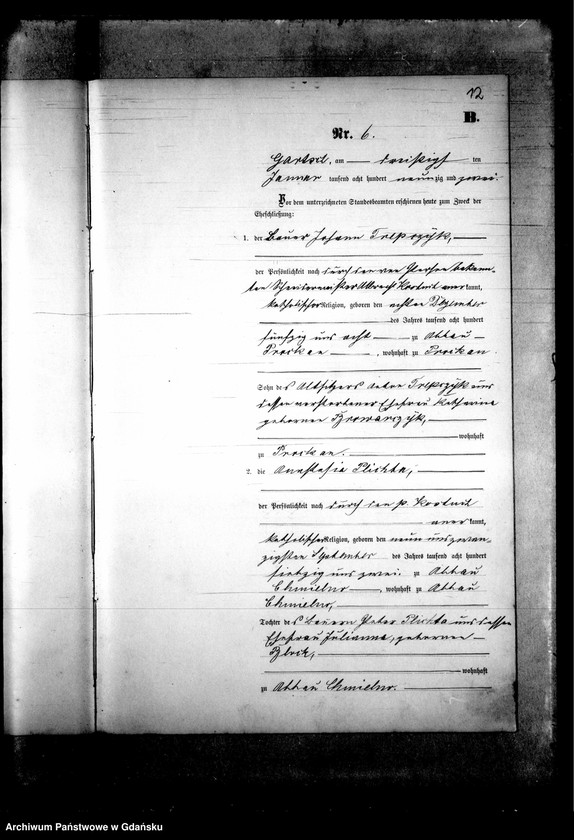 12
B.
Nr. 6.
Gartsch, am dreißigsten
Januar tausend acht hundert neunzig und zwei.
Vor dem unterzeichneten Standesbeamten erschienen heute zum Zweck der
Eheschließung:
1. der Bauer Johann Trepczyk,
der Persönlichkeit nach durch den von Person bekann-
ten Albrecht kannt,
katholischer Religion, geboren den achten Dezember
des Jahres tausend acht hundert
fünfzig und acht zu Abbau
Prockau, wohnhaft zu Prockau
Sohn des Altsitzers Trepczyk und
dessen verstorbener Ehefrau Katharina
geborenen Browarczyk,
wohnhaft
zu Prockau.
2. die Anastasia Plichta,
der Persönlichkeit nach durch den p.
aner kannt,
katholischer Religion, geboren den neun und zwan-
zigsten September des Jahres tausend acht hundert
siebzig und zwei zu Abbau
Chmielno, wohnhaft zu Abbau
Chmielno,
Tochter des Bauern Peter Plichta und dessen
Ehefrau Julianna, geborenen
wohnhaft
zu Abbau Chmielno.
Archiwum Państwowe w Gdańsku